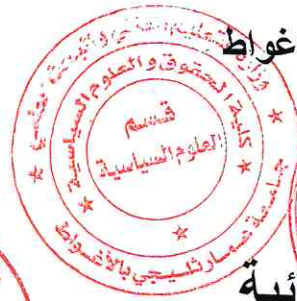 غواط
وزارة التعليم العالي والبحث العلمي
كلية الحقوق والعلوم السياسية
قسم
العلوم السياسية
جامعة عمار ثليجي بالأغواط
ئية